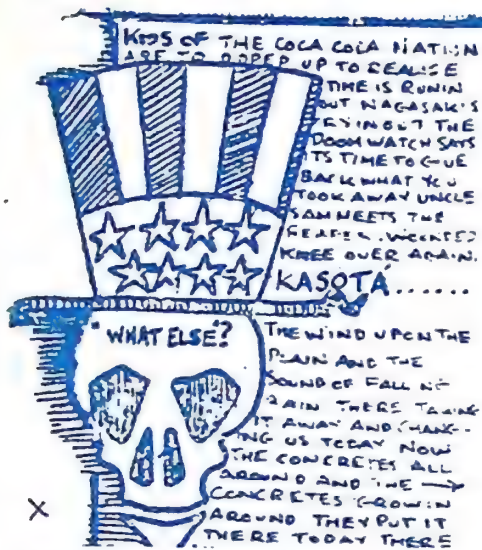 KIDS OF THE COCA COLA NATION
ARE TO DOPED UP TO REALISE
TIME IS RUNIN
OUT NAGASAKI'S
THE
DOOMWATCH SAYS
ITS TIME TO GIVE
BACK WHAT YOU
TOOK AWAY UNCLE
SAM MEETS THE
KNEE OVER AGAIN.
KASOTA......
"WHAT ELSE"?
THE WIND UPON THE
PLAIN AND THE
SOUND OF FALLING
RAIN THERE TAKING
IT AWAY AND CHANG-
ING US TODAY NOW
THE CONCRETES ALL
AROUND AND THE →
CONCRETES GROWIN
AROUND THEY PUT IT
THERE TODAY THERE
X